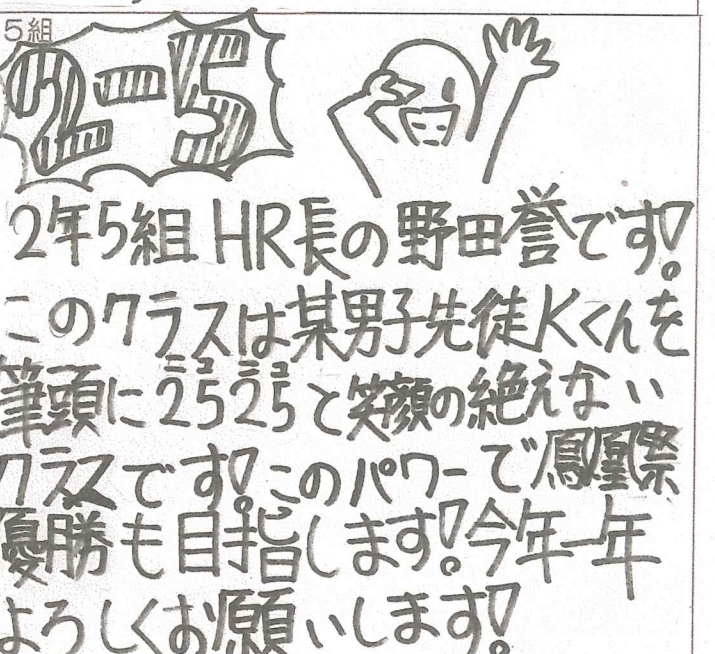 5組
2-5
2年5組 HR長の野田誉です!
このクラスは某男子先徒Kくんを
筆頭に2525と笑顔の絶えない
ニコニコ
クラスです!このパワーで鳳凰祭
優勝も目指します!今年一年
よろしくお願いします!